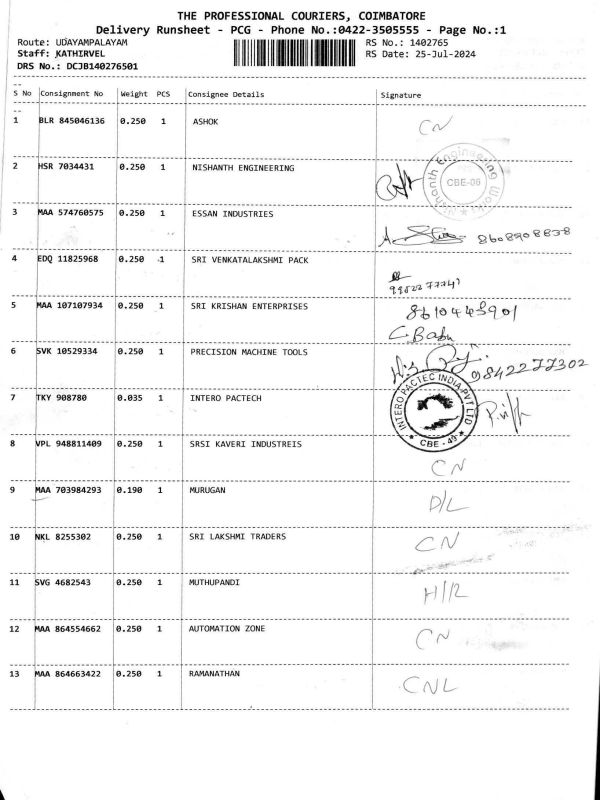 THE PROFESSIONAL COURIERS, COIMBATORE
Delivery Runsheet - PCG - Phone No.:0422-3505555 - Page No.:1
Route: UDAYAMPALAYAM RS No.: 1402765
Staff: KATHIRVEL RS Date: 25-Jul-2024
DRS No.: DCJB140276501
--
S No Consignment No Weight PCS Consignee Details Signature
--
1 BLR 845046136 0.250 1 ASHOK CN
2 HSR 7034431 0.250 1 NISHANTH ENGINEERING
Nishanth Engineering Works
CBE-06
3 MAA 574760575 0.250 1 ESSAN INDUSTRIES
8608908838
4 EDQ 11825968 0.250 1 SRI VENKATALAKSHMI PACK
5 MAA 107107934 0.250 1 SRI KRISHAN ENTERPRISES 8610443901
C. Babu
6 SVK 10529334 0.250 1 PRECISION MACHINE TOOLS
9842277302
7 TKY 908780 0.035 1 INTERO PACTECH
INTERO PACTEC INDIA PVT LTD
CBE - 49
8 VPL 948811409 0.250 1 SRSI KAVERI INDUSTREIS CN
9 MAA 703984293 0.190 1 MURUGAN D/L
10 NKL 8255302 0.250 1 SRI LAKSHMI TRADERS CN
11 SVG 4682543 0.250 1 MUTHUPANDI H/R
12 MAA 864554662 0.250 1 AUTOMATION ZONE CN
13 MAA 864663422 0.250 1 RAMANATHAN CNL